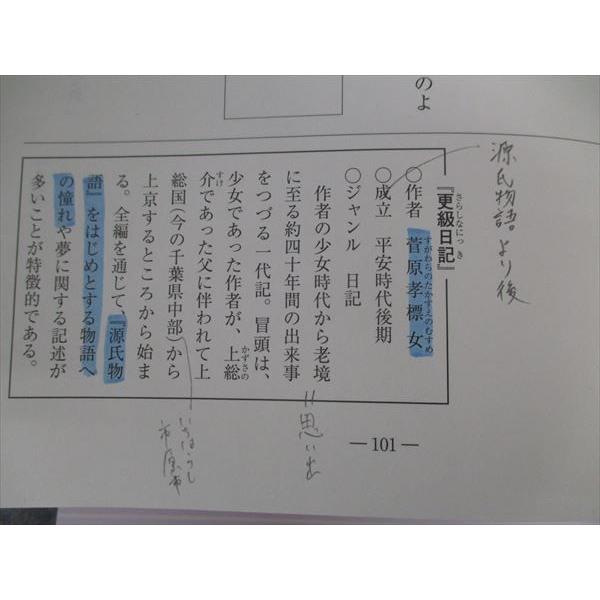 のよ
源氏物語より後
『更級日記』
さらしなにっき
○作者　菅原孝標女
すがわらのたかすえのむすめ
○成立　平安時代後期
○ジャンル　日記
作者の少女時代から老境
に至る約四十年間の出来事
をつづる一代記。冒頭は、
少女であった作者が、上総
かずさの
介であった父に伴われて上
すけ
総国（今の千葉県中部）から
上京するところから始ま
る。全編を通じて、『源氏物
語』をはじめとする物語へ
の憧れや夢に関する記述が
多いことが特徴的である。
=思い出
市原市
―101―